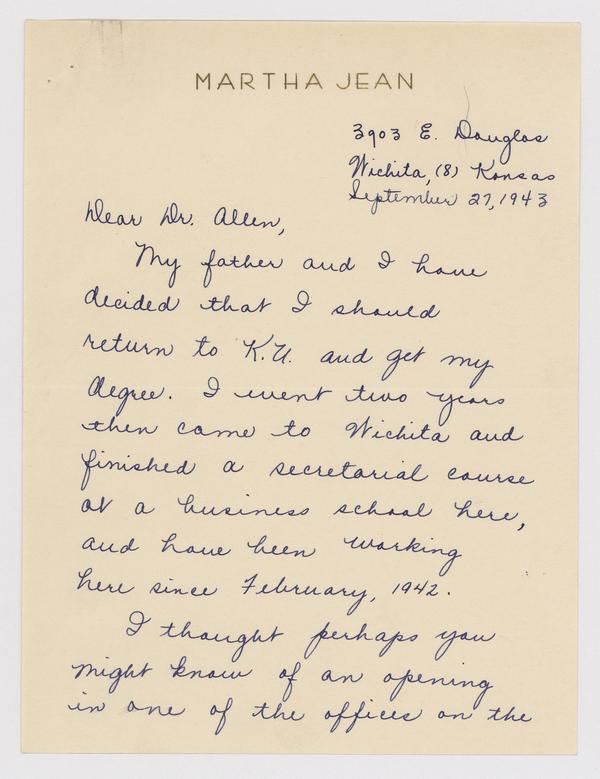 MARTHA JEAN
3903 E. Douglas
Wichita, (8) Kansas
September 27, 1943
Dear Dr. Allen,
My father and I have
decided that I should
return to K.U. and get my
degree. I went two years
then came to Wichita and
finished a secretarial course
at a business school here,
and have been working
here since February, 1942.
I thought perhaps you
might know of an opening
in one of the offices on the